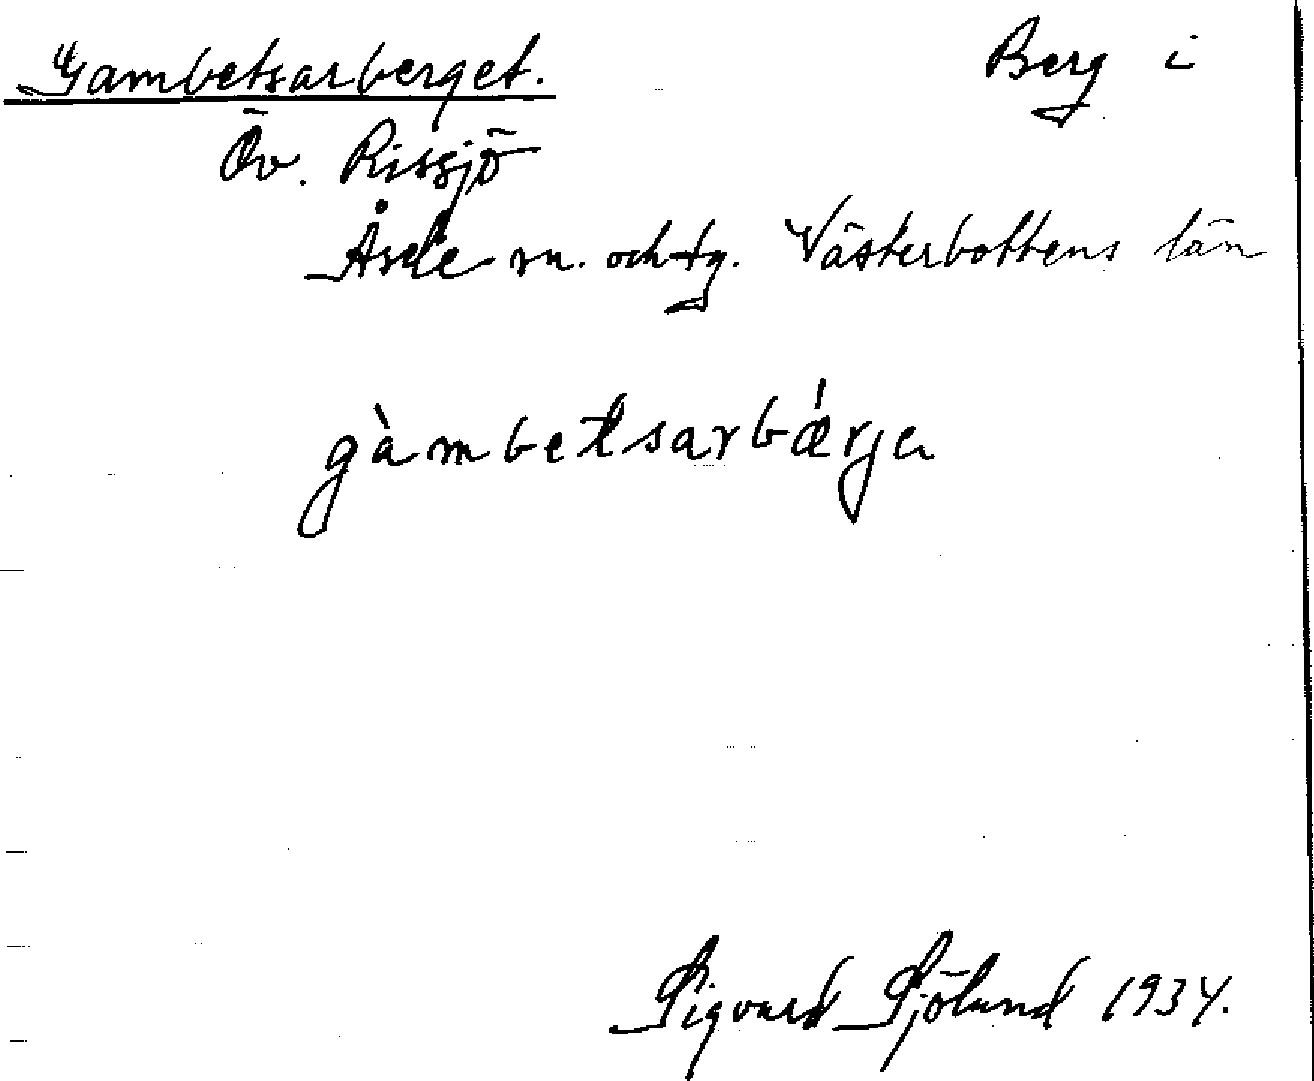 Gambetsarberget. Berg i
Öv. Rissjö
Åsele sn. och tg. Västerbottens län
gàmbetsarbǽrjɐ
Sigvard Sjölund 1934.